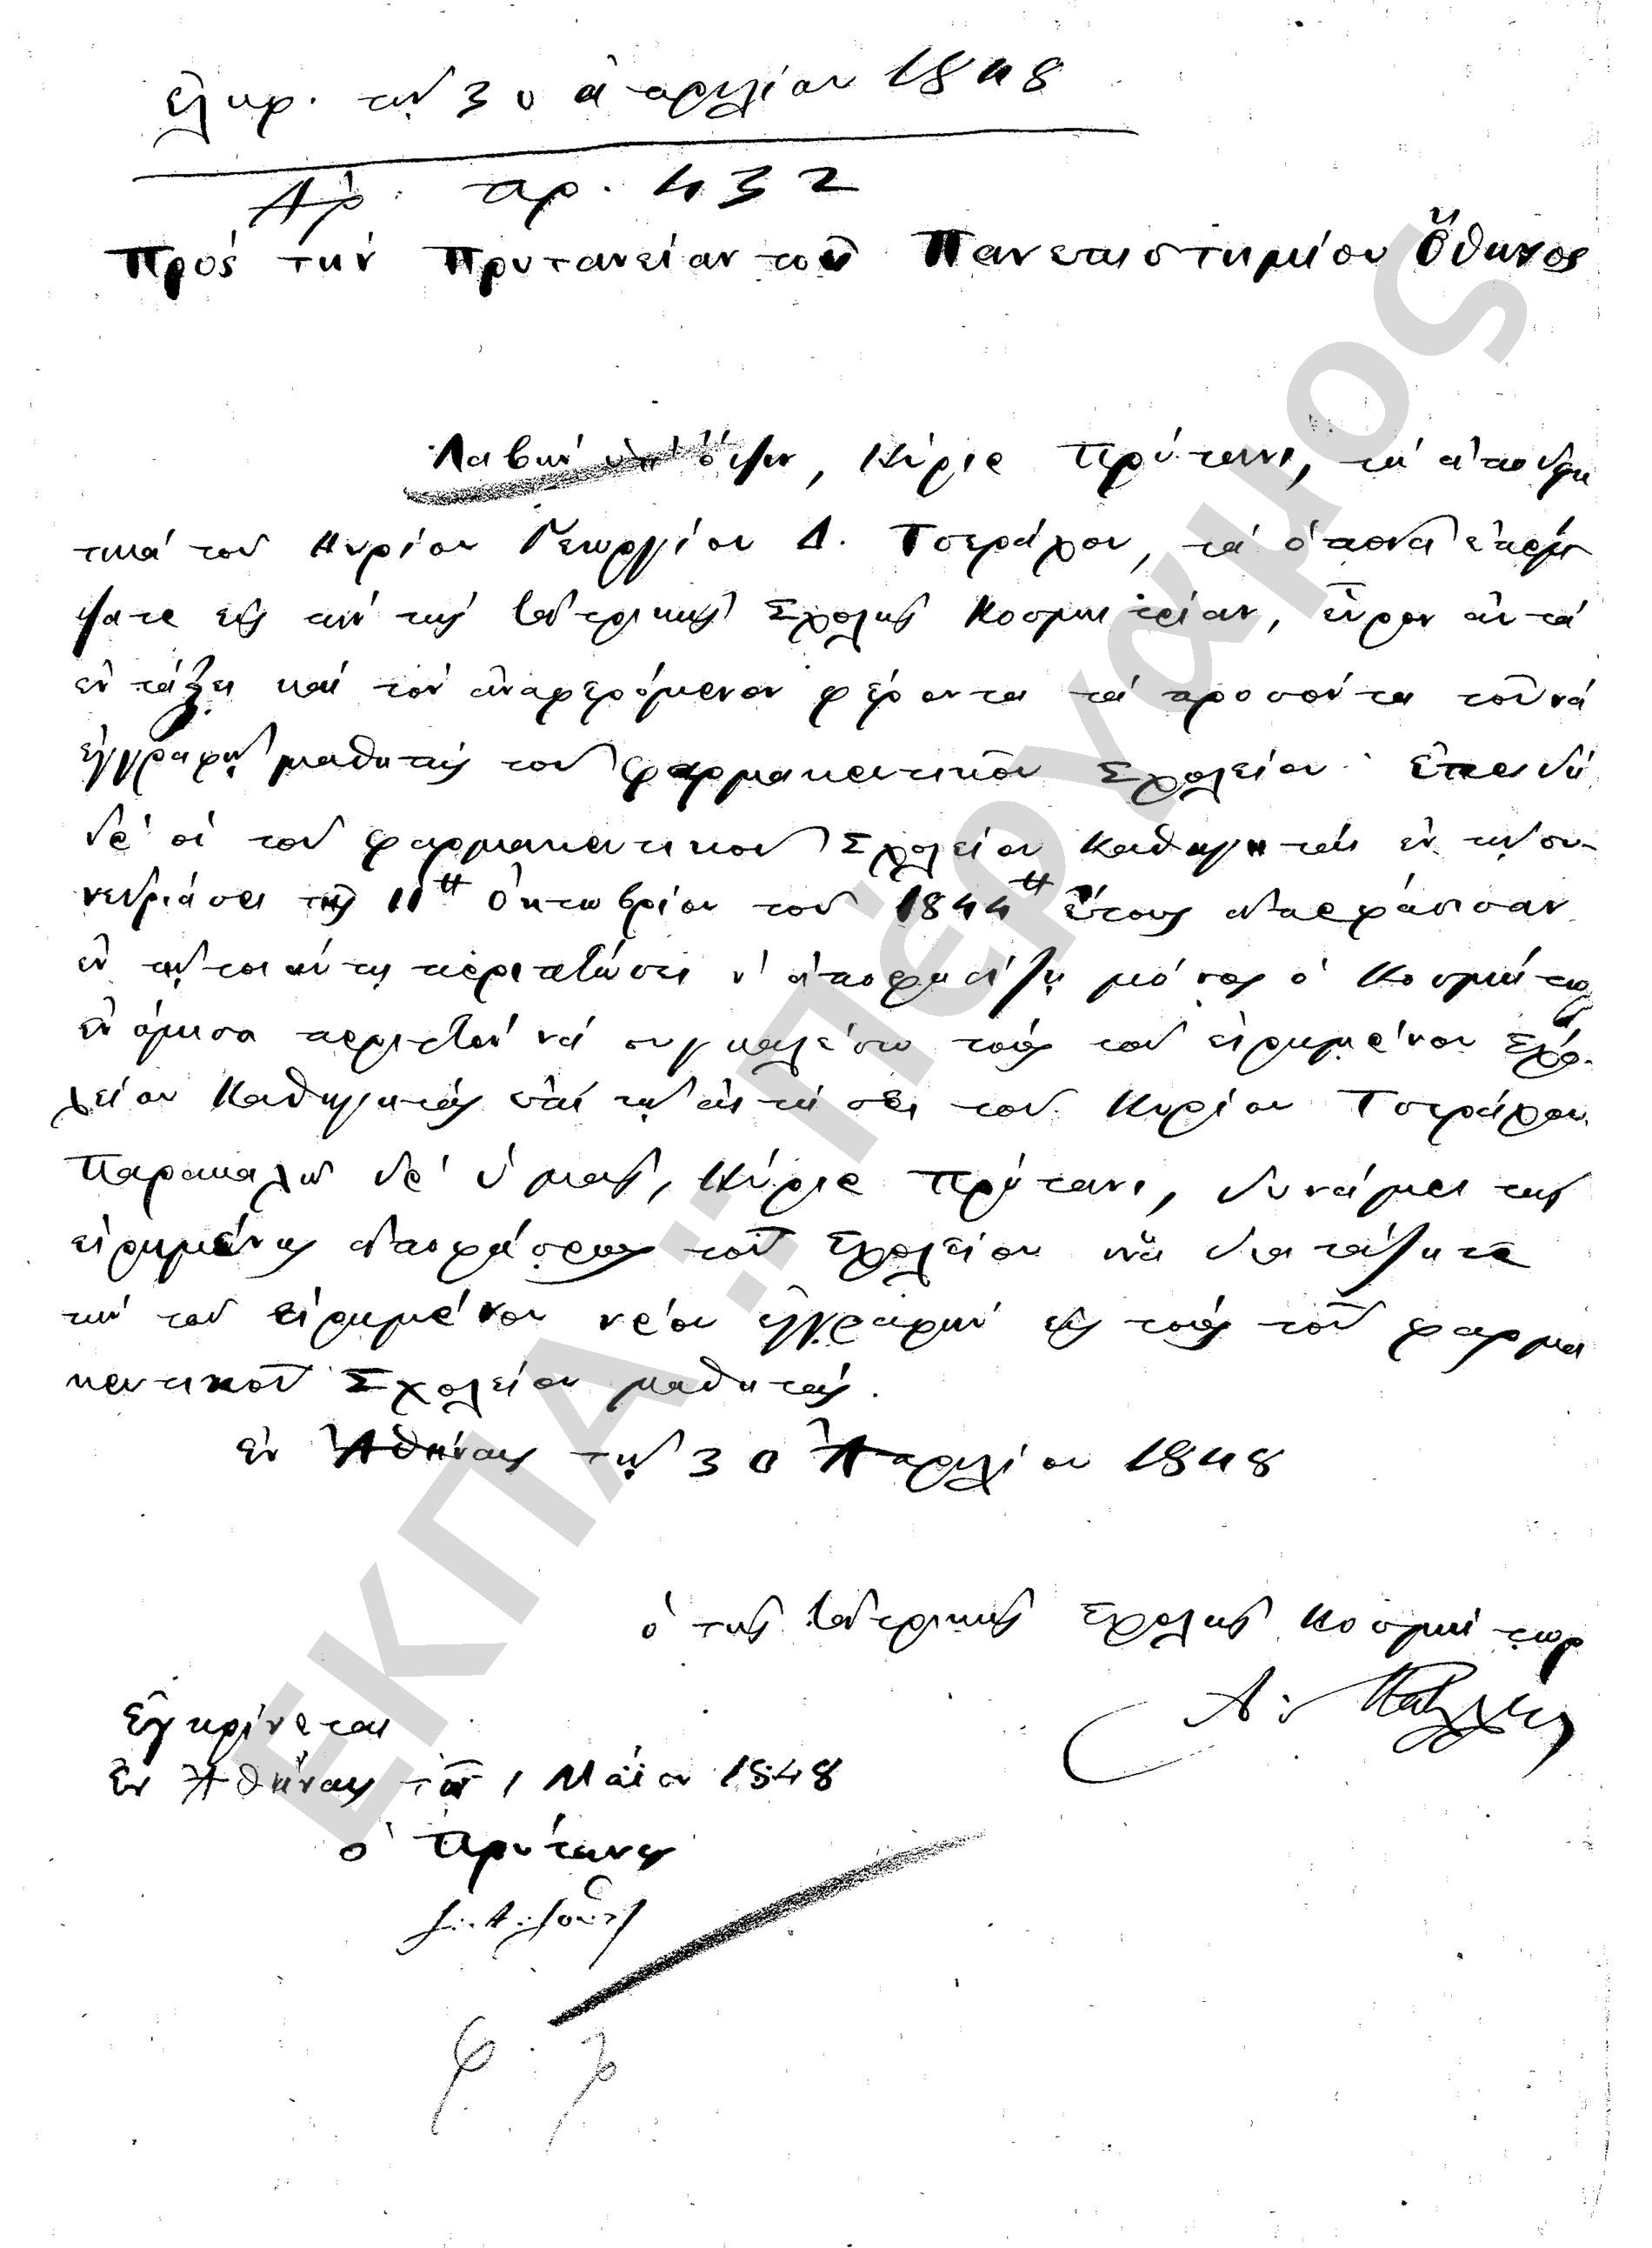 ἐλήφ. τῇ 30 ἀπριλίου 1848
Ἀρ. πρ. 432
Πρὸς τὴν Πρυτανείαν τοῦ Πανεπιστημίου Ὄθωνος
Λαβὼν ὑπ' ὄψιν, Κύριε Πρύτανι, τὰ ἀποδεικ
τικὰ τοῦ Κυρίου Γεωργίου Δ. Τσεράχου, τὰ ὁποῖα ἐπέμ
ψατε εἰς τὴν τῆς Ἰατρικῆς Σχολῆς Κοσμητρίαν, εὗρον αὐτὰ
ἐν τάξει καὶ τὸν ἀναφερόμενον φέροντα τὰ προσόντα τοῦ νὰ
ἐγγραφῇ μαθητὴς τοῦ φαρμακευτικοῦ Σχολείου. Ἐπειδὴ
δὲ οἱ τοῦ φαρμακευτικοῦ Σχολείου Καθηγηταὶ ἐν τῇ συ-
νεδριάσει τῆς 11 Ὀκτωβρίου τοῦ 1844 ἔτους ἀπεφάσισαν
ἐν τῇ τοιαύτῃ περιπτώσει ν' ἀποφασίζῃ μόνος ὁ Κοσμήτωρ
ἐνόμισα περιττὸν νὰ συγκαλέσω τοὺς τοῦ εἰρημένου Σχο-
λείου Καθηγητὰς ἐπὶ τῇ αἰτήσει τοῦ Κυρίου Τσεράχου.
Παρακαλῶ δὲ ὑμᾶς, Κύριε Πρύτανι, δυνάμει τῆς
εἰρημένης ἀποφάσεως τοῦ Σχολείου νὰ διατάξητε
τὴν τοῦ εἰρημένου νέου ἐγγραφὴν εἰς τοὺς τοῦ φαρμα
κευτικοῦ Σχολείου μαθητάς.
ἐν Ἀθήναις τῇ 30 Ἀπριλίου 1848
ὁ τῆς Ἰατρικῆς Σχολῆς Κοσμήτωρ
Ἐγκρίνεται
Ἐν Ἀθήναις τῇ 1 Μαΐου 1848
ὁ Πρύτανις
ΕΚΠΑ:"Πέργαμος